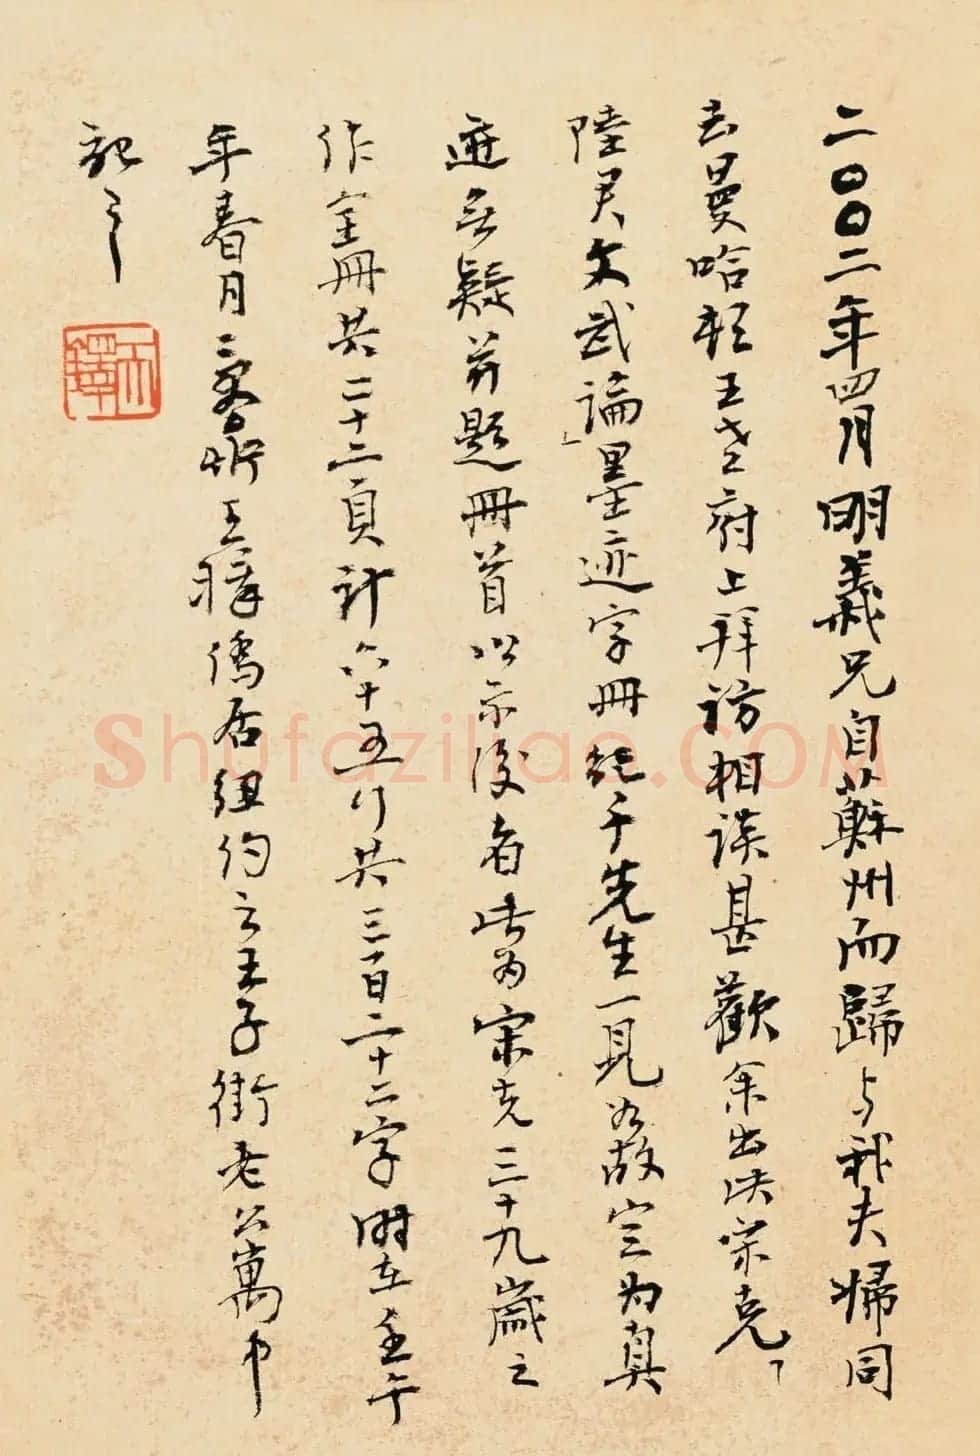 二〇〇二年四月明義兄自蘇州而歸与我夫婦同
去曼哈頓王老府上拜訪相談甚歡余出宋克「
陸君文武論」墨迹字冊紀千先生一見如故定为真
迹无疑并題冊首以示後者此为宋克三十九歲之
作全冊共二十二頁計六十五行共三百二十二字時在壬午
年春月王僑居紐約之王子街老公寓中
記之
Shufaziliao.COM